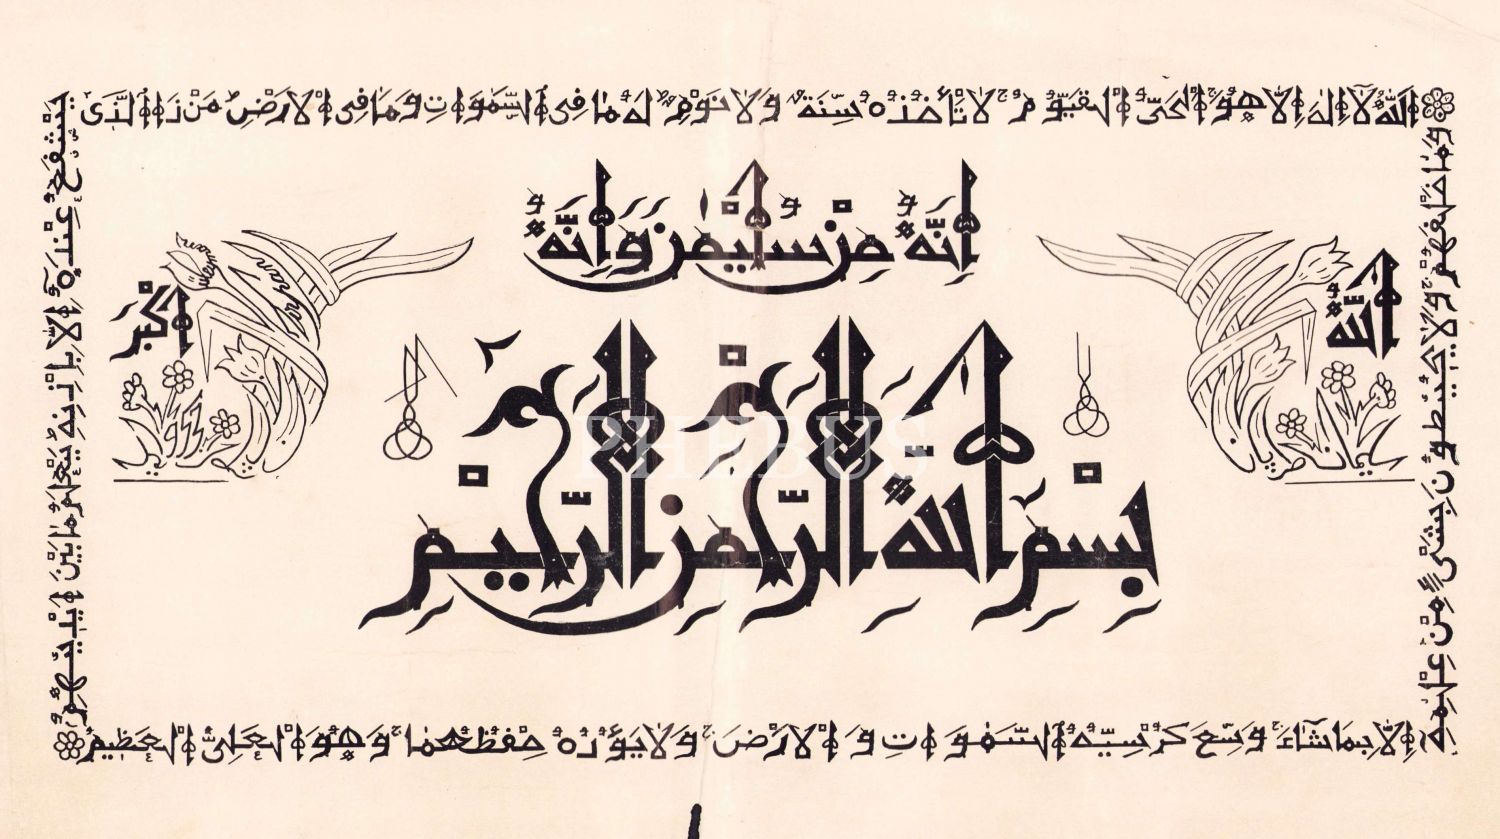 اَللّٰهُ لَا إِلٰهَ إِلَّا هُوَ الْحَيُّ الْقَيُّومُ لَا تَأْخُذُهُ سِنَةٌ وَلَا نَوْمٌ لَهُ مَا فِي السَّمٰوَاتِ وَمَا فِي الْأَرْضِ مَنْ ذَا الَّذِي
يَشْفَعُ عِنْدَهُ إِلَّا بِإِذْنِهِ يَعْلَمُ مَا بَيْنَ أَيْدِيهِمْ
وَمَا خَلْفَهُمْ وَلَا يُحِيطُونَ بِشَيْءٍ مِنْ عِلْمِهِ
إِلَّا بِمَا شَاءَ وَسِعَ كُرْسِيُّهُ السَّمٰوَاتِ وَالْأَرْضَ وَلَا يَؤُدُهُ حِفْظُهُمَا وَهُوَ الْعَلِيُّ الْعَظِيمُ
اِنَّهُ مِنْ سُلَيْمٰنَ وَاِنَّهُ
اَللّٰهُ
اَكْبَر
بِسْمِ اللّٰهِ الرَّحْمٰنِ الرَّحِيمِ
PHEBUS